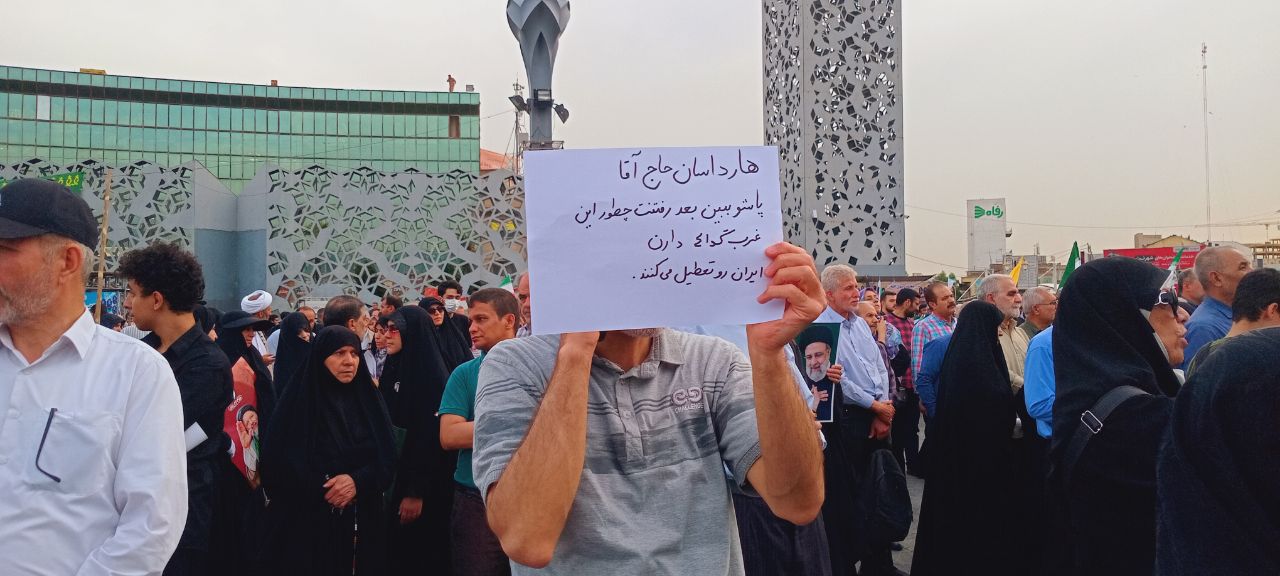 هارداسان حاج آقا
پاشو ببین بعد رفتنت چطور این
غرب‌گداها دارن
ایران رو تعطیل می‌کنند.
CHALLENGE
رفاه